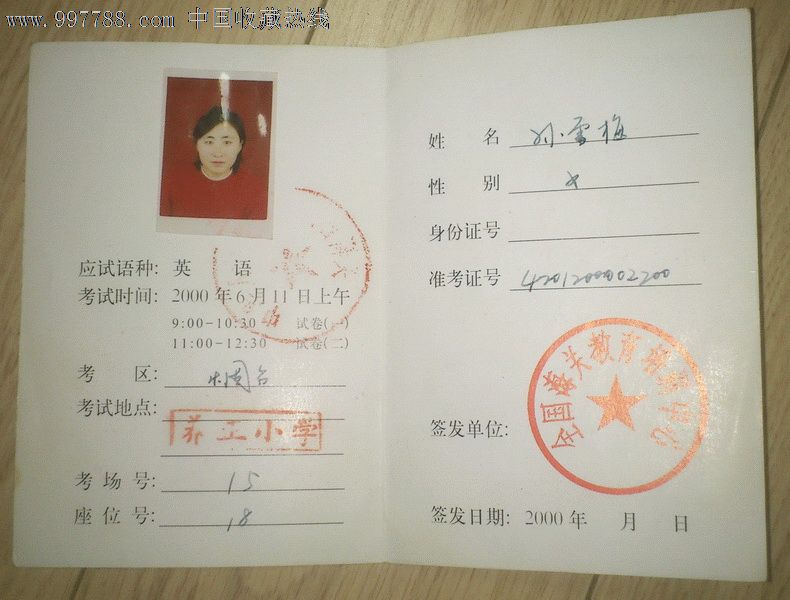 www.997788.com 中国收藏热线
应试语种: 英 语
考试时间: 2000 年 6 月 11 日上午
9:00-10:30 试卷(一)
11:00-12:30 试卷(二)
考 区:
考试地点:
工小学
考 场 号: 15
座 位 号: 18
姓 名 孙雪梅
性 别 女
身份证号
准考证号 4201200002200
全国 教育 中心
签发单位:
签发日期: 2000 年 月 日